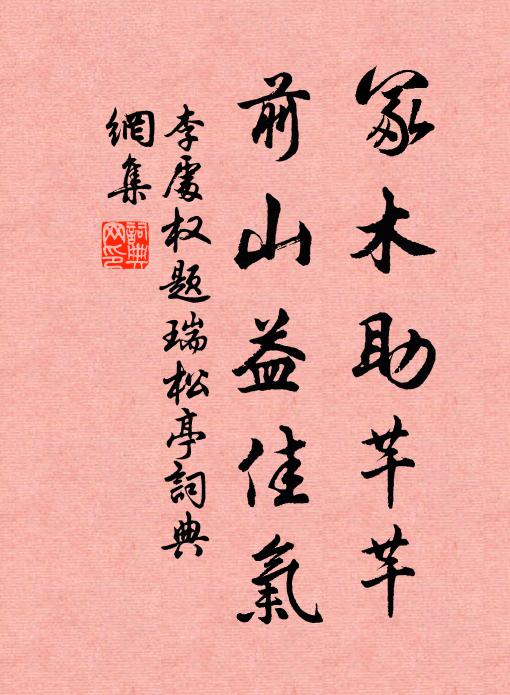 冢木助芊芊
前山益佳氣
李處权题瑞松亭詞典
網集
詞典
网印